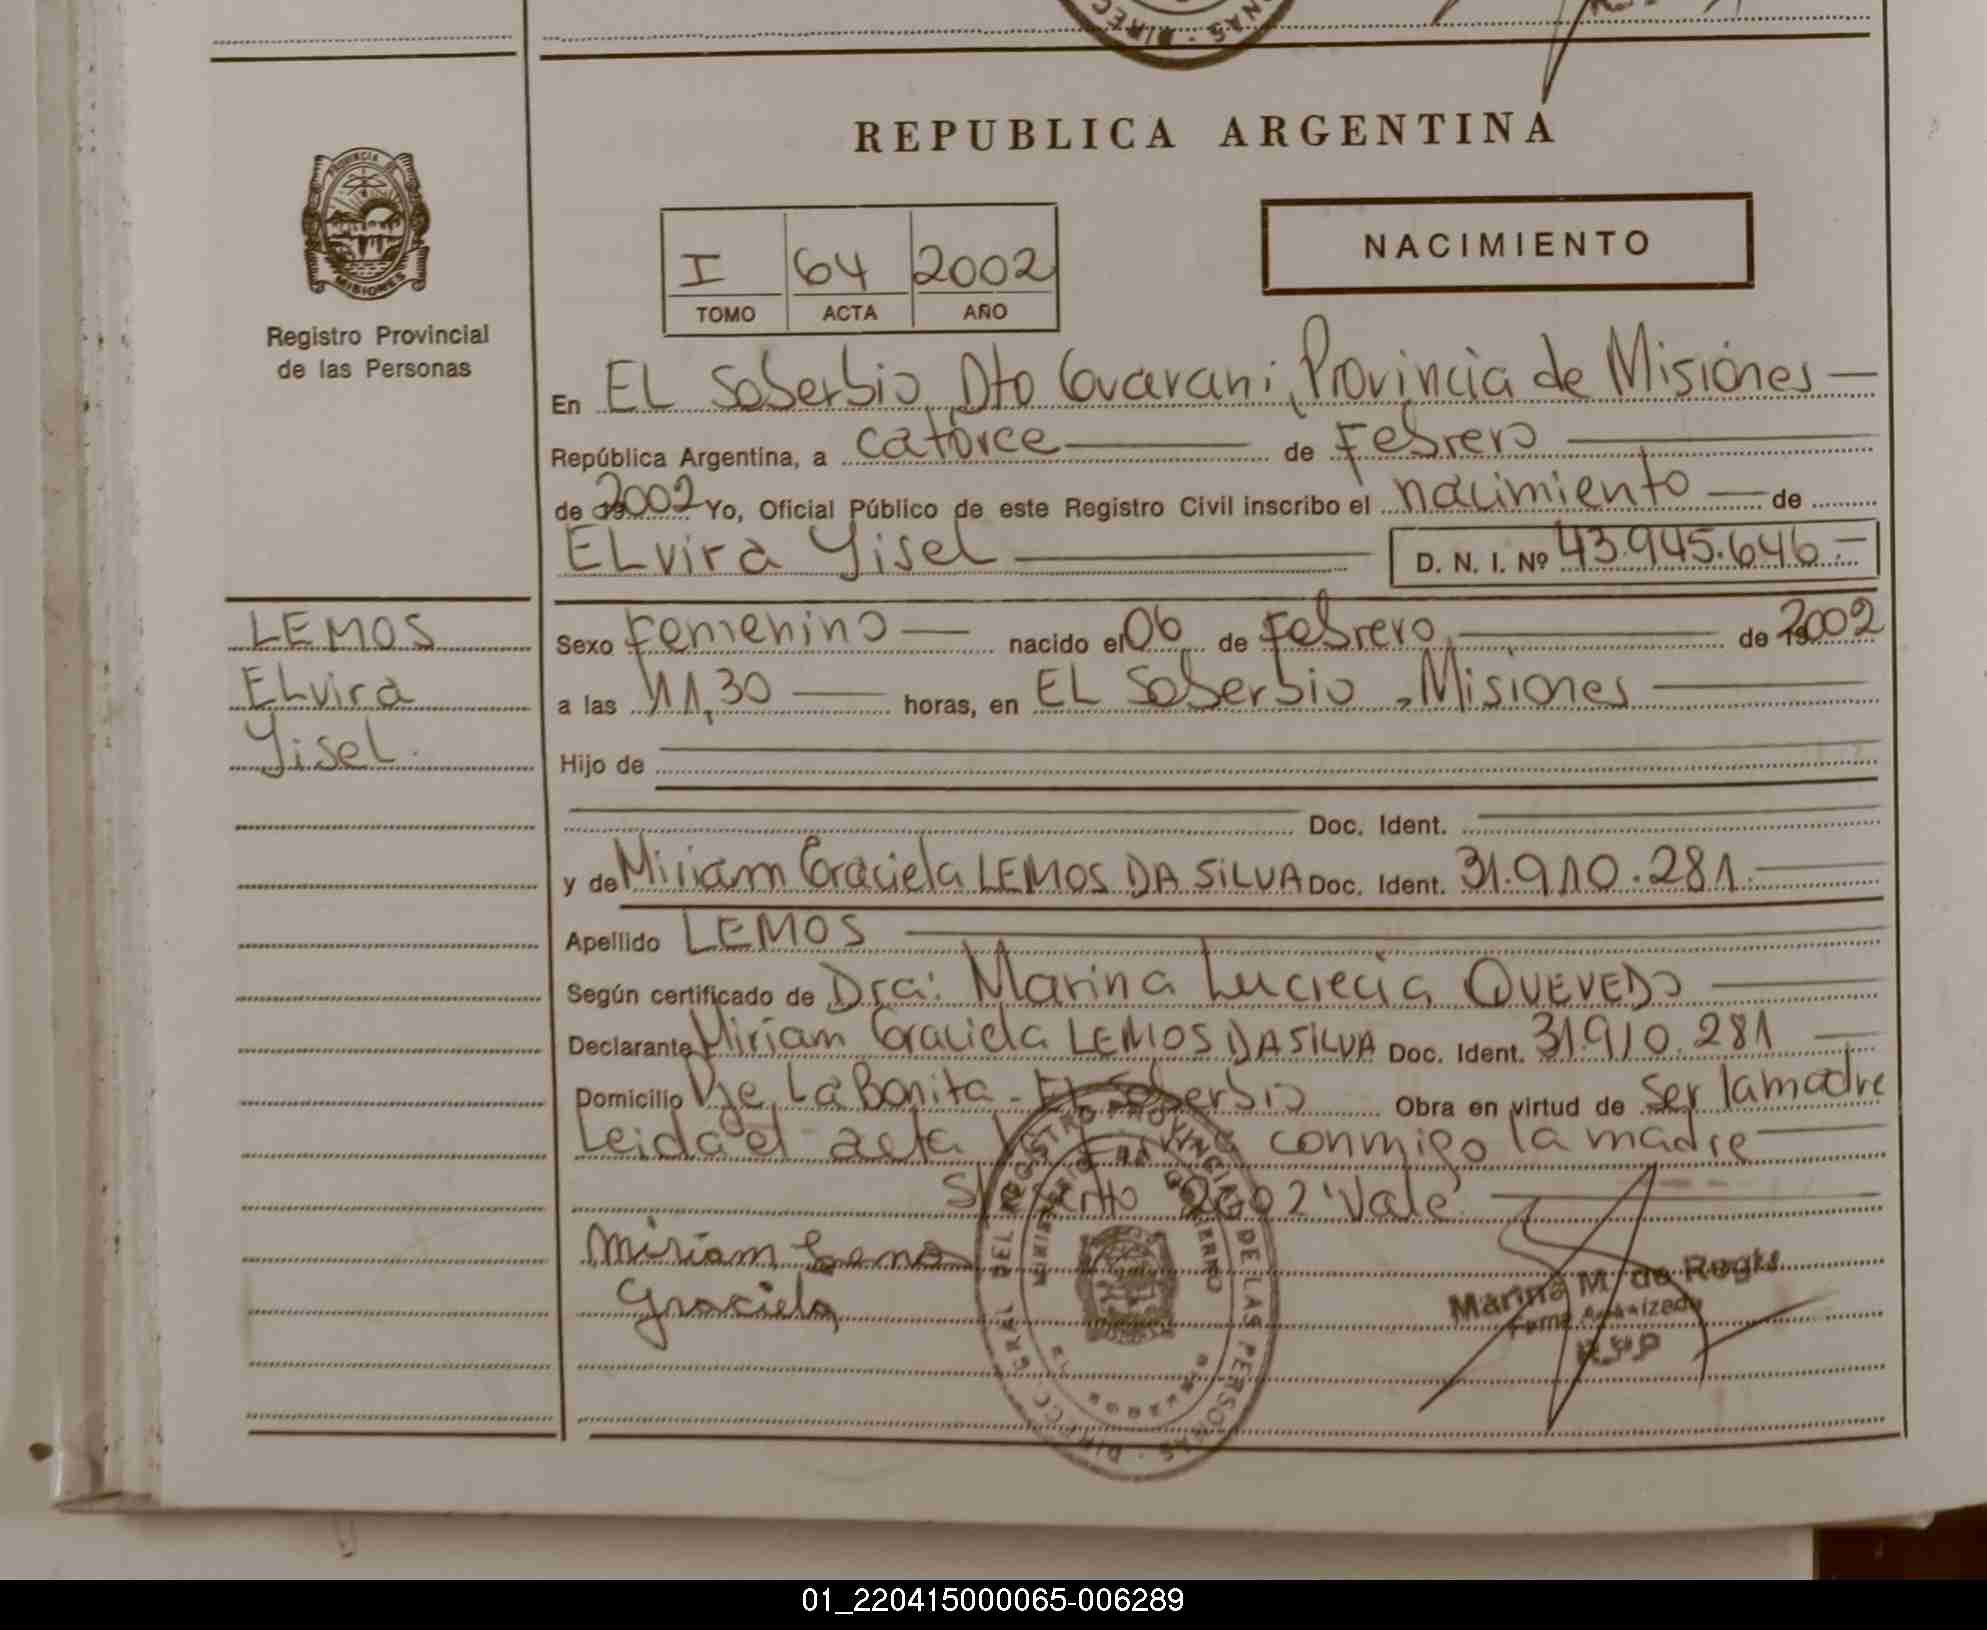 REPUBLICA ARGENTINA
PROVINCIA DE
MISIONES
Registro Provincial
de las Personas
I 64 2002
TOMO ACTA AÑO
NACIMIENTO
En EL Soberbio, Dto Guarani, Provincia de Misiones
República Argentina, a catorce de Febrero
de 2002 Yo, Oficial Público de este Registro Civil inscribo el nacimiento de
ELvira Yisel D. N. I. Nº 43.945.646
LEMOS
ELvira
Yisel.
Sexo Femenino nacido el 06 de Febrero de 2002
a las 11,30 horas, en EL Soberbio, Misiones
Hijo de
Doc. Ident.
y de Miriam Graciela LEMOS DA SILVA Doc. Ident. 31.910.281
Apellido LEMOS
Según certificado de Dra: Marina Lucrecia QUEVEDO
Declarante Miriam Graciela LEMOS DA SILVA Doc. Ident. 31.910.281
Domicilio Pje La Bonita - El Soberbio Obra en virtud de ser la madre
Leida el acta conmigo la madre
2002 "Vale"
Miriam Lemos
Graciela
DIRECC GRAL DEL REGISTRO PROVINCIAL DE LAS PERSONAS
MINISTERIO DE GOBIERNO
MISIONES
Marina M. de
01_220415000065-006289